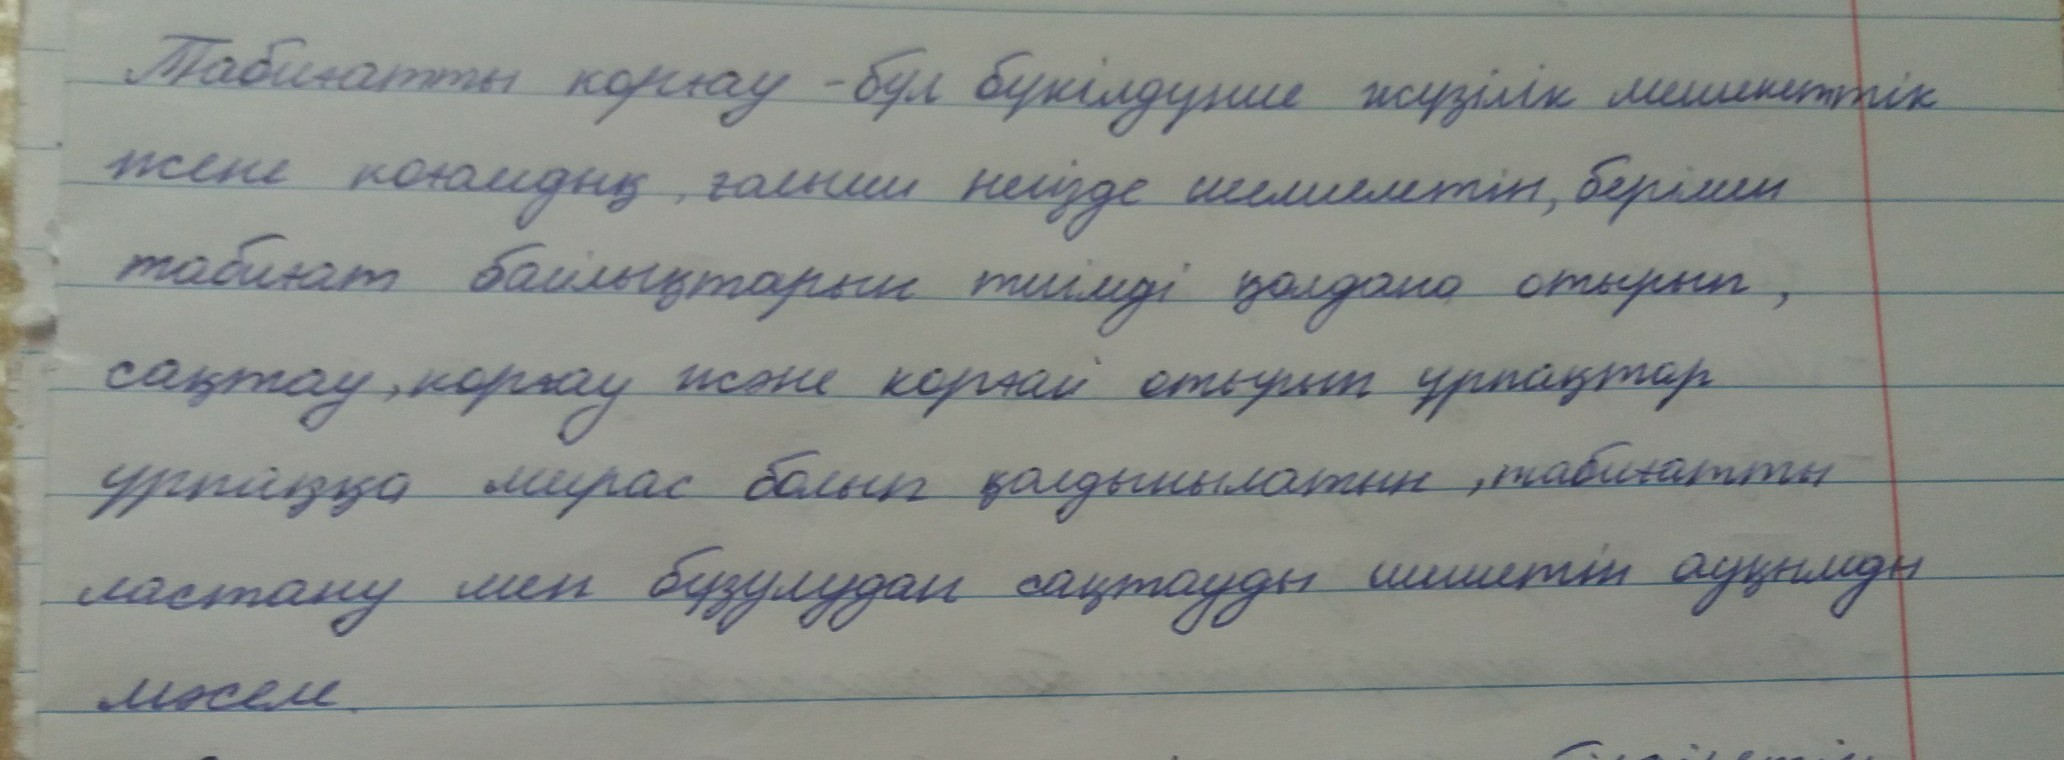 Табиғатты корғау - бұл бүкілдүние жүзілік мемекеттік
жене коғамдық, ғалыми негізде шешілетін, берімен
табиғат байлықтарын тиімді қолдана отырып,
сақтау, корғау және корғай отырып ұрпақтар
ұрпаққа мирас болып қалдынылатын, табиғатты
ластану мен бұзулудан сақтауды шешетін ауқымды
мәселе.